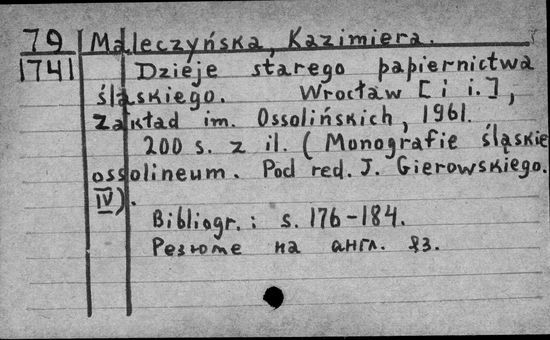 79 Maleczyńska, Kazimiera.
1741 Dzieje starego papiernictwa
śląskiego. Wrocław [i i.],
Zakład im. Ossolińskich, 1961.
200 s. z il. (Monografie śląskie
ossolineum. Pod red. J. Gierowskiego.
IV).
Bibliogr.: s. 176-184.
Резюме на англ. яз.